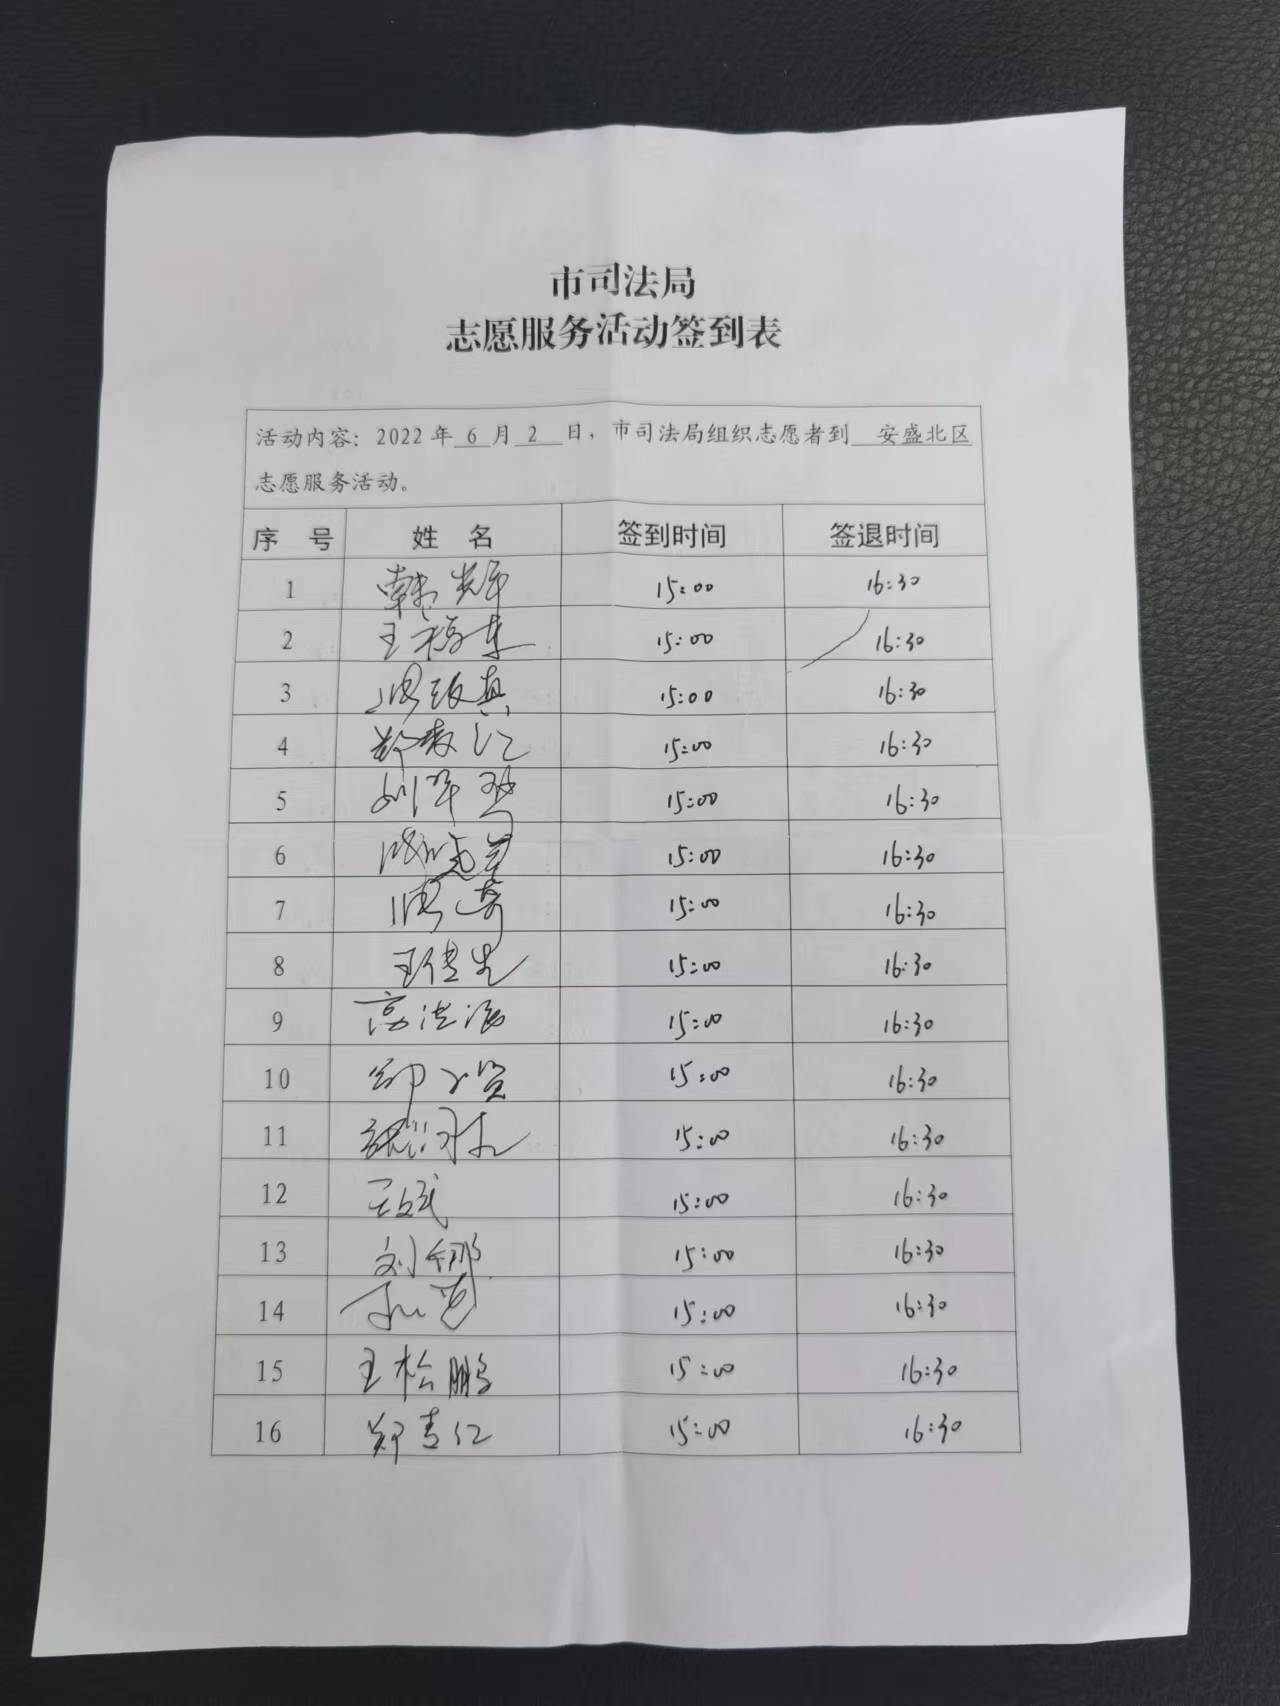 市司法局
志愿服务活动签到表
活动内容：2022年 6 月 2 日，市司法局组织志愿者到 安盛北区
志愿服务活动。
序 号 姓 名 签到时间 签退时间
1 韩辉 15:00 16:30
2 王 15:00 16:30
3 15:00 16:30
4 郑 15:00 16:30
5 刘 15:00 16:30
6 15:00 16:30
7 15:00 16:30
8 王 15:00 16:30
9 高洪 15:00 16:30
10 15:00 16:30
11 15:00 16:30
12 王 15:00 16:30
13 刘 15:00 16:30
14 15:00 16:30
15 王松鹏 15:00 16:30
16 郑青 15:00 16:30